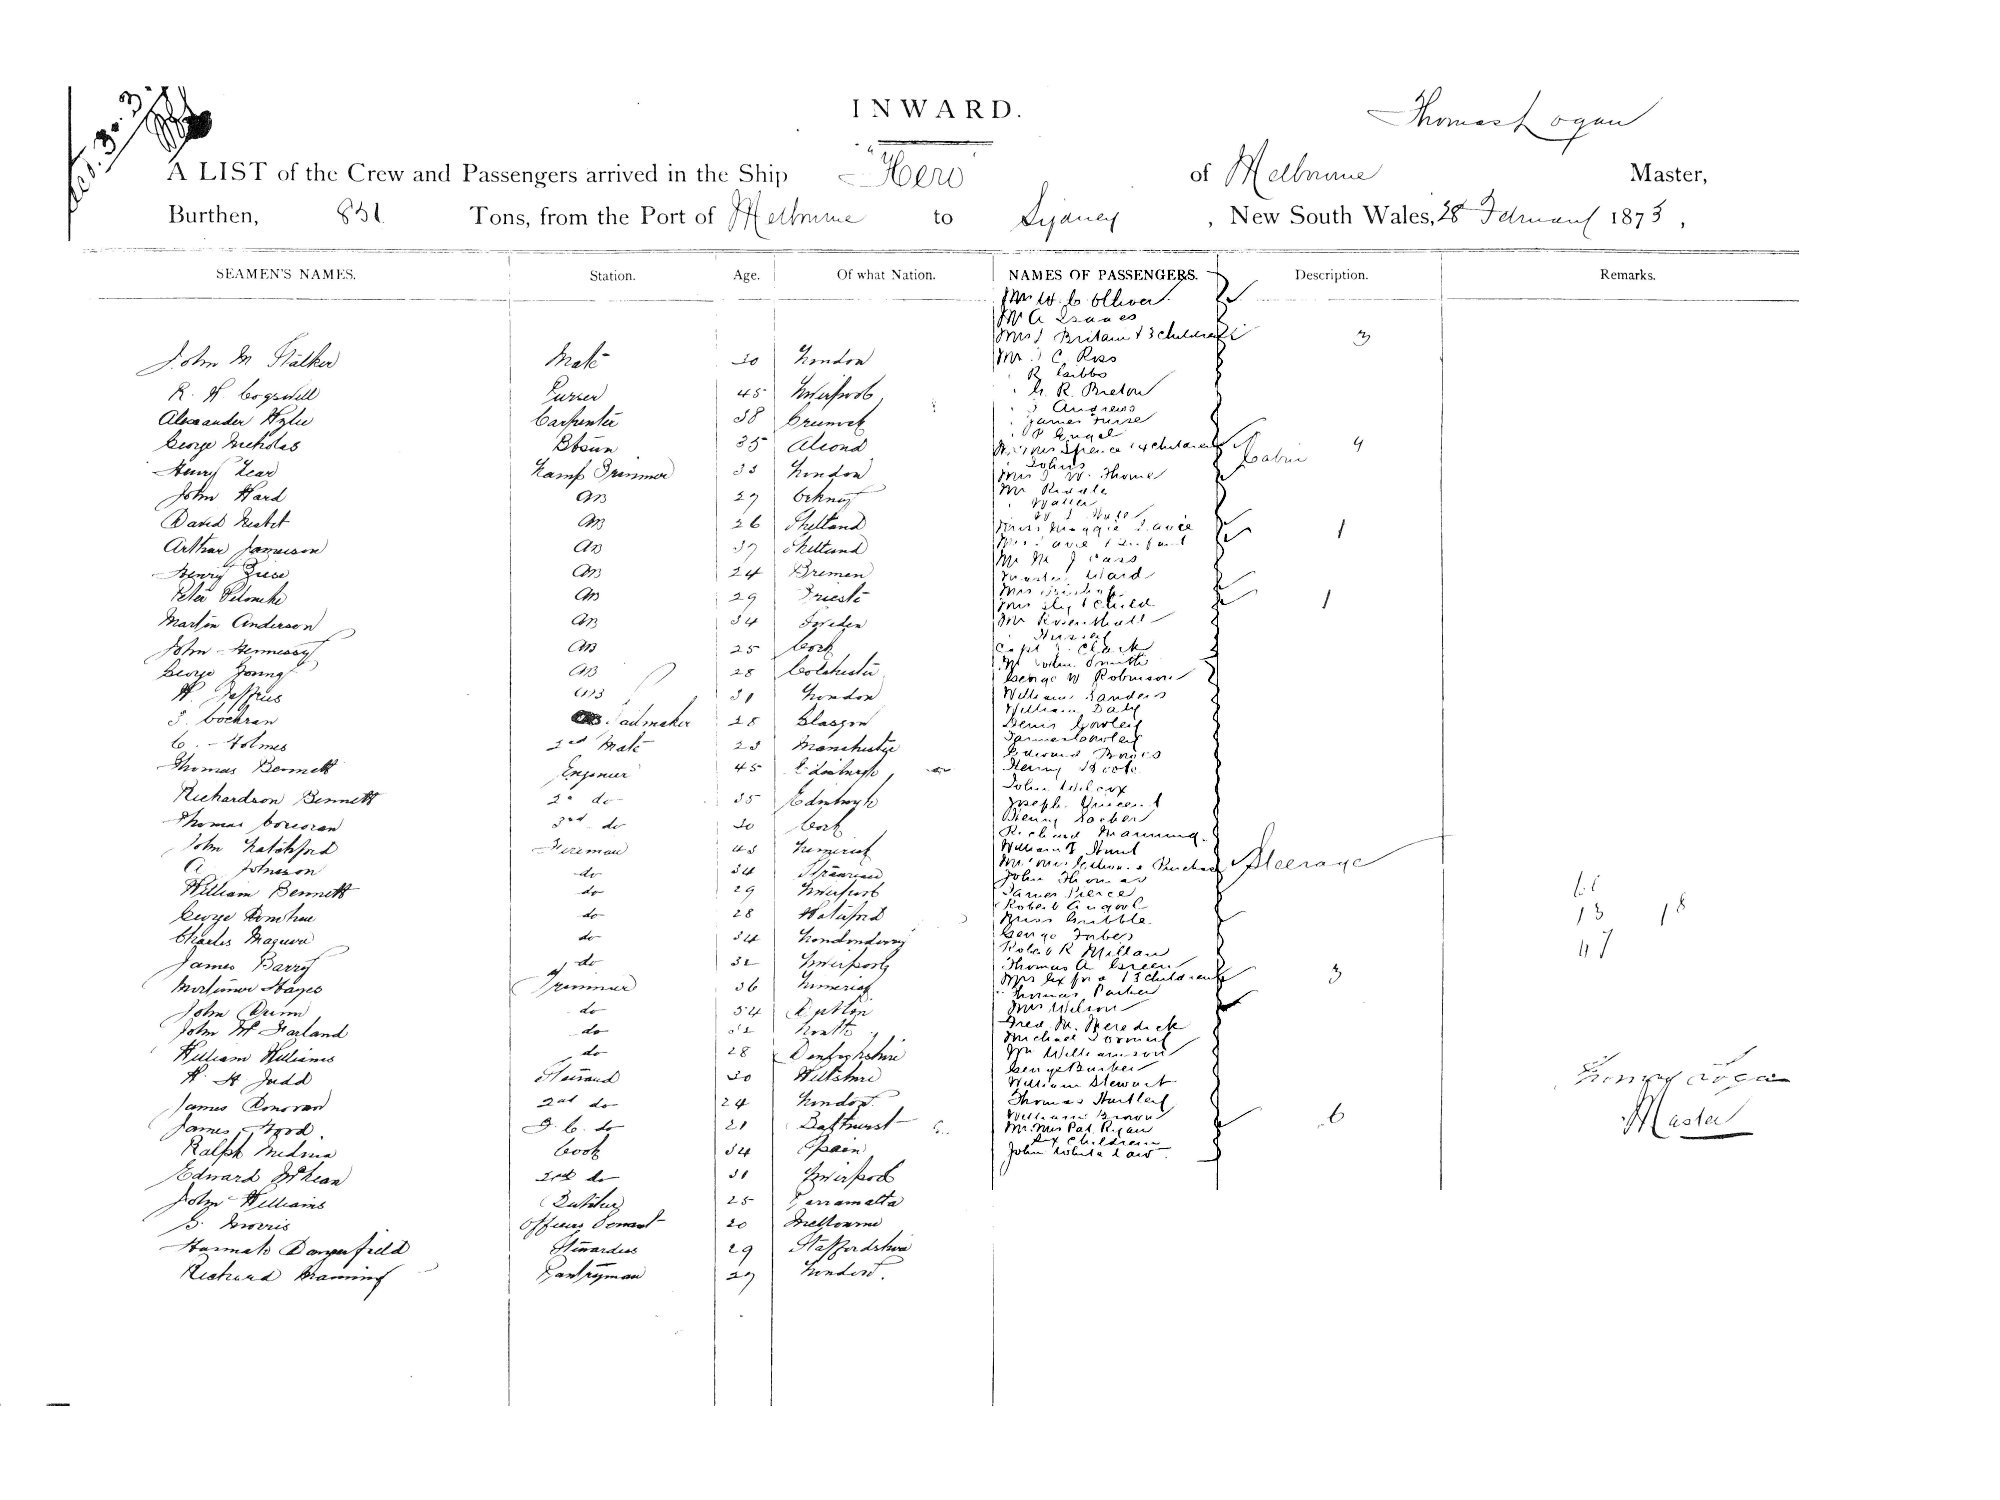 INWARD.
Thomas Logan
A LIST of the Crew and Passengers arrived in the Ship "Hero" of Melbourne Master,
Burthen, 831 Tons, from the Port of Melbourne to Sydney, New South Wales, 28 February 1873,
SEAMEN'S NAMES. Station. Age. Of what Nation. NAMES OF PASSENGERS. Description. Remarks.
John M Stalker Mate 30 London
R. H. Cogswell Purser 45 Liverpool
Alexander Wylie Carpenter 38 Greenock
George Nicholas Bosun 35
Henry Lear Lamp Trimmer 33 London
John Ward AB 27 Orkney
David AB 26 Shetland
Arthur Jameison AB 37 Shetland
Henry AB 24 Bremen
Peter AB 29 Trieste
Martin Anderson AB 34 Sweden
John Hennessy AB 25 Cork
George Young AB 28 Colchester
W. Jeffries AB 31 London
J. Cochran Sailmaker 28 Glasgow
C. Holmes 2nd Mate 23 Manchester
Thomas Bennett Engineer 45 Edinburgh
Richardson Bennett 2d do 35 Edinburgh
Thomas Corcoran 3rd do 30 Cork
John Latchford Fireman 43 Limerick
A Johnson do 34
William Bennett do 29 Liverpool
George do 28 Waterford
Charles Maguire do 34 Londonderry
James Barry do 32 Liverpool
Mortimer Hayes Trimmer 36 Limerick
John Dunn do 34 Dublin
John McFarland do 32
William Williams do 28 Denbighshire
W. H Judd Steward 30 Wiltshire
James Donovan 2nd do 24 London
James Ford do 21 Bathurst
Ralph Medina Cook 34 Spain
Edward McLean 2nd do 31 Liverpool
John Williams Butcher 25 Parramatta
G. Morris Officers Servant 20 Melbourne
Hannah Dangerfield Stewardess 29 Staffordshire
Richard Manning Pantryman 27 London.
Mr W. C Olliver
Mr A Isaacs
Mrs Britain & 3 children 3
Mr J C Ross
R Gibbs
G. R. Breton
J Andrews
James
P Engel
Mr & Mrs Spence & 4 children Cabin 4
Johns
Mrs J W. Thorne
Mr Riddle
Walter
Miss Maggie 1
Mrs & Infant
Mr M J Cass
Master Ward
Mrs
Mrs & Child 1
Mr Rosenthall
Capt J. Clark
Mr John Smith
George W Robinson
William Sanders
William Daly
Denis Cowley
James Cowley
Edward
Henry
John Wilcox
Joseph Vincent
Henry
Richard Manning
William T Hunt
Mr & Mrs Steerage
John Thomas
James Pierce
Robert
Miss Gribble
George Forbes
Robert R Millan
Thomas A Green
Mrs & 3 children 3
Thomas Parker
Mrs Wilson
Fred. M. Meredick
Michael
Wm Williamson
George Barber
William Stewart
Thomas Hartley
William Brown
Mr. Mrs Pat. Ryan 6
& children
John White Law
13 18
47
Thomas Logan
Master